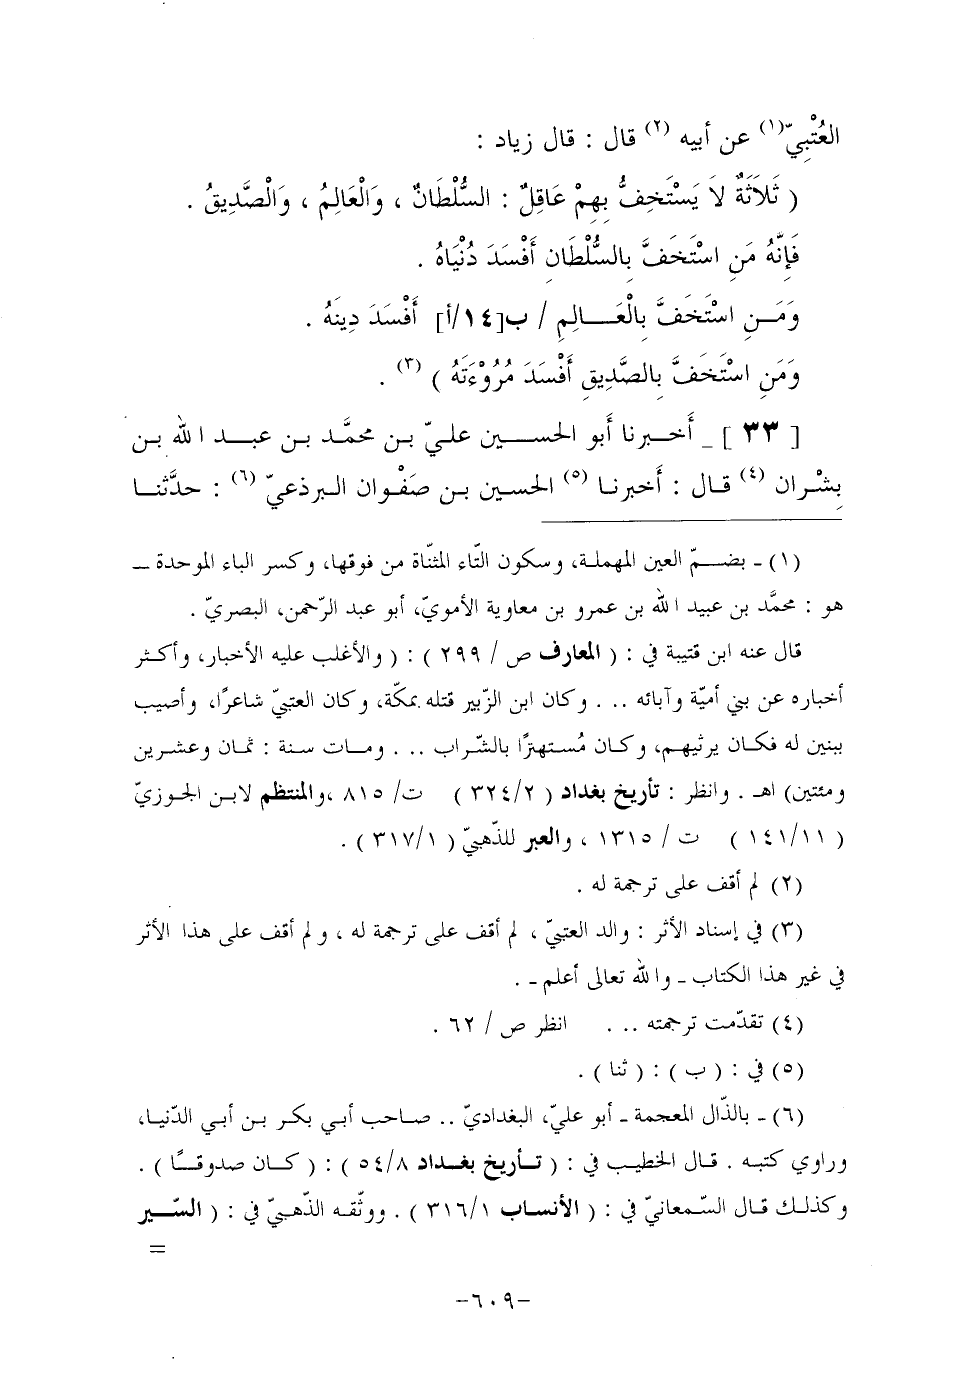 العُتْبِيّ(١) عن أبيه (٢) قال : قال زياد :
( ثَلَاثَةٌ لَا يَسْتَخِفُّ بِهِمْ عَاقِلٌ : السُّلْطَانُ ، وَالْعَالِمُ ، وَالْصَّدِيقُ .
فَإِنَّهُ مَنِ اسْتَخَفَّ بِالسُّلْطَانِ أَفْسَدَ دُنْيَاهُ .
وَمَــنِ اسْتَخَفَّ بِالْعَــالِمِ / ب[١٤/أ] أَفْسَدَ دِينَهُ .
وَمَنِ اسْتَخَفَّ بِالصَّدِيقِ أَفْسَدَ مُرُوْءَتَهُ ) (٣) .
[ ٣٣ ] _ أَخـبرنا أبو الحســين عليّ بن محمَّد بن عبـد الله بن
بِشْران (٤) قال : أَخبرنا (٥) الحسين بن صَفْوان البرذعيّ (٦) : حدَّثنا
(١) - بضــمّ العين المهملة، وسكون التّاء المثنّاة من فوقها، وكسر الباء الموحدة ــ
هو : محمَّد بن عبيد الله بن عمرو بن معاوية الأمويّ، أبو عبد الرّحمن، البصريّ .
قال عنه ابن قتيبة في : ( المعارف ص / ٢٩٩ ) : ( والأغلب عليه الأخبار، وأكثر
أخباره عن بني أميّة وآبائه .. . وكان ابن الزّبير قتله بمكّة، وكان العتبيّ شاعرًا، وأصيب
ببنين له فكان يرثيهم، وكان مُستهترًا بالشّراب .. . ومات سنة : ثمان وعشرين
ومئتين) اهـ . وانظر : تأريخ بغداد ( ٣٢٤/٢ ) ت/ ٨١٥ ،والمنتظم لابن الجوزيّ
( ١٤١/١١ ) ت / ١٣١٥ ، والعبر للذّهبيّ ( ٣١٧/١ ) .
(٢) لم أقف على ترجمة له .
(٣) في إسناد الأثر : والد العتبيّ ، لم أقف على ترجمة له ، ولم أقف على هذا الأثر
في غير هذا الكتاب ـ والله تعالى أعلم ـ .
(٤) تقدّمت ترجمته .. . انظر ص / ٦٢ .
(٥) في : ( ب ) : ( ثنا ) .
(٦) - بالذّال المعجمة ـ أبو عليّ، البغداديّ .. صاحب أبي بكر بن أبي الدّنيا،
وراوي كتبه . قال الخطيب في : ( تأريخ بغداد ٥٤/٨ ) : ( كان صدوقًا ) .
وكذلك قال السّمعانيّ في : ( الأنساب ٣١٦/١ ) . ووثّقه الذّهبيّ في : ( السّير
=
-٦٠٩-